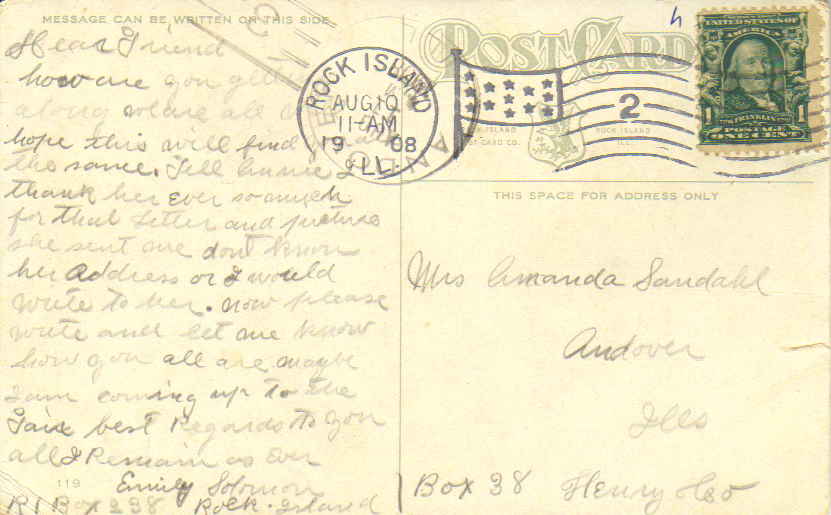 MESSAGE CAN BE WRITTEN ON THIS SIDE
Dear Friend
how are you getting
along we are all
hope this will find
the same. Tell Annie I
thank her Ever so much
for that Letter and pictures
she sent me dont know
her Address or I would
write to her. now please
write and let me know
how you all are maybe
I am coming up to the
Fair best Regards to you
all I Remain as Ever
Emily Solomon
R1 Box 238 Rock Island
119
POST CARD
ROCK ISLAND
AUG 10
11-AM
1908
ILL.
2
ROCK ISLAND
POST CARD CO.
ROCK ISLAND
ILL.
UNITED STATES OF
AMERICA
1 FRANKLIN 1
POSTAGE
ONE CENT
THIS SPACE FOR ADDRESS ONLY
Mrs Amanda Sandahl
Andover
Ills
Box 38 Henry Co